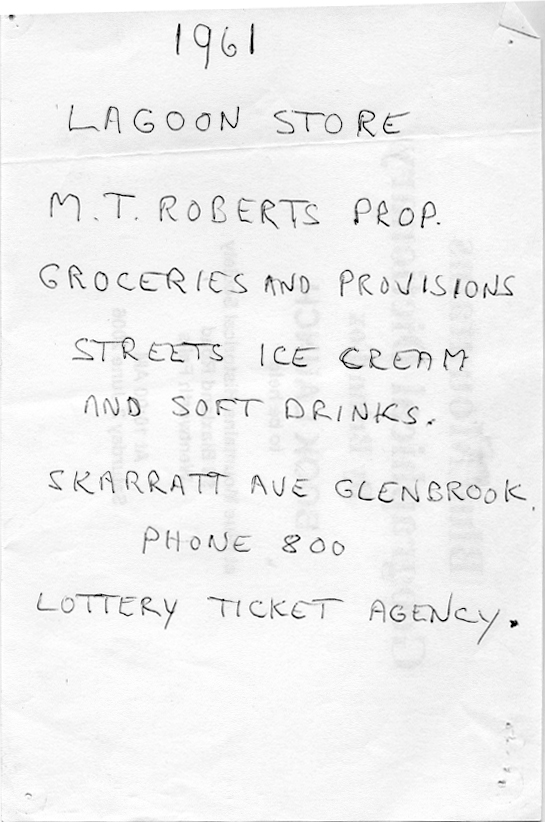 1961
LAGOON STORE
M.T. ROBERTS PROP.
GROCERIES AND PROVISIONS
STREETS ICE CREAM
AND SOFT DRINKS.
SKARRATT AVE GLENBROOK.
PHONE 800
LOTTERY TICKET AGENCY.